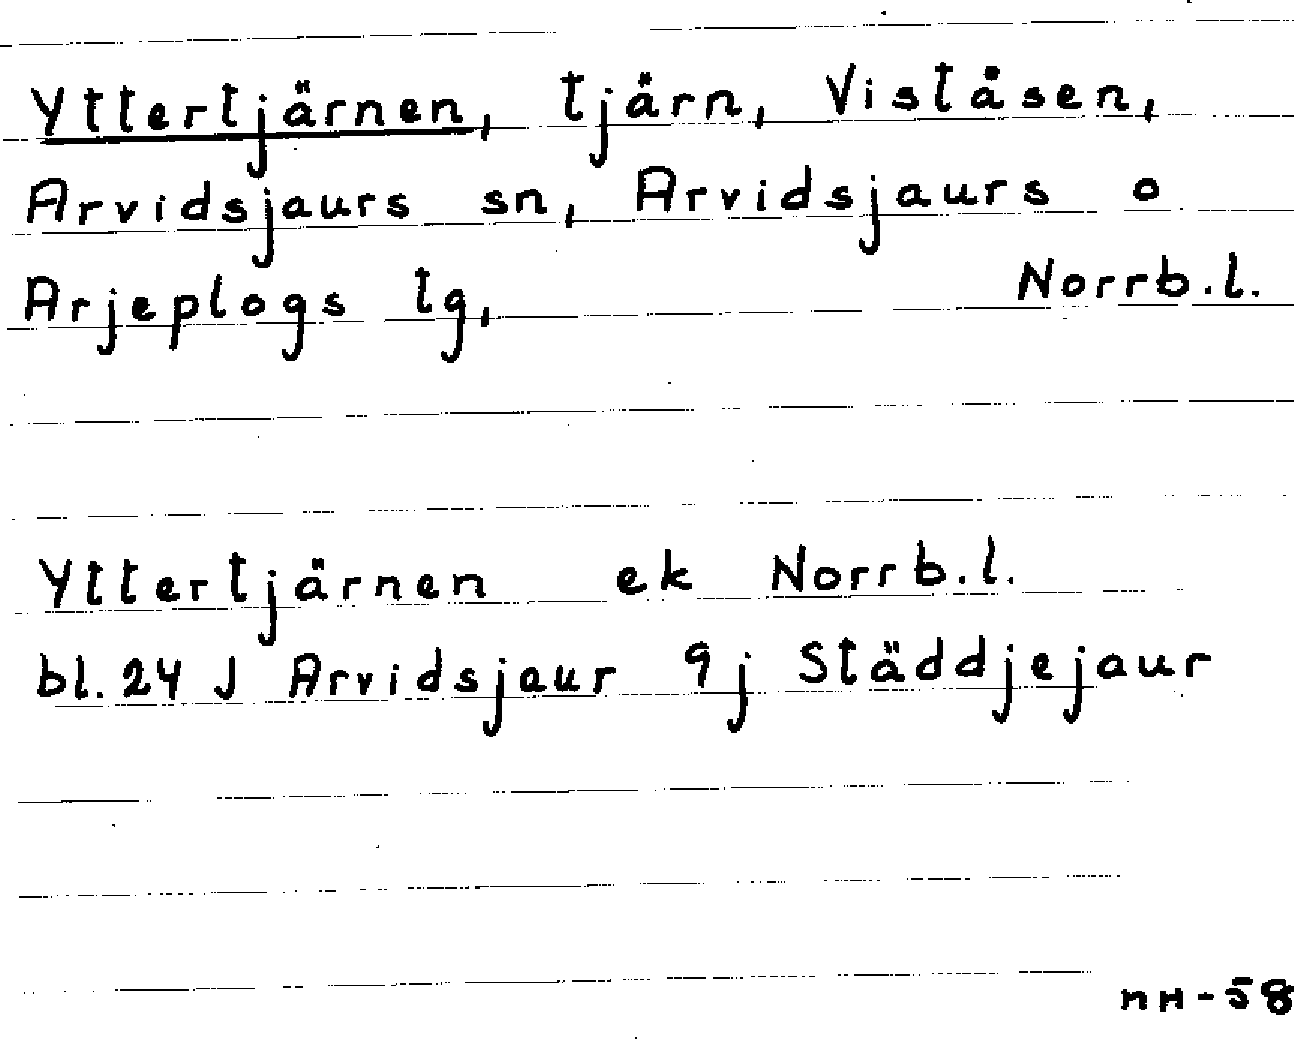 Yttertjärnen, tjärn, Viståsen,
Arvidsjaurs sn, Arvidsjaurs o
Arjeplogs lg, Norrb.l.
Yttertjärnen ek Norrb.l.
bl. 24 J Arvidsjaur 9j Städdjejaur
nH-58